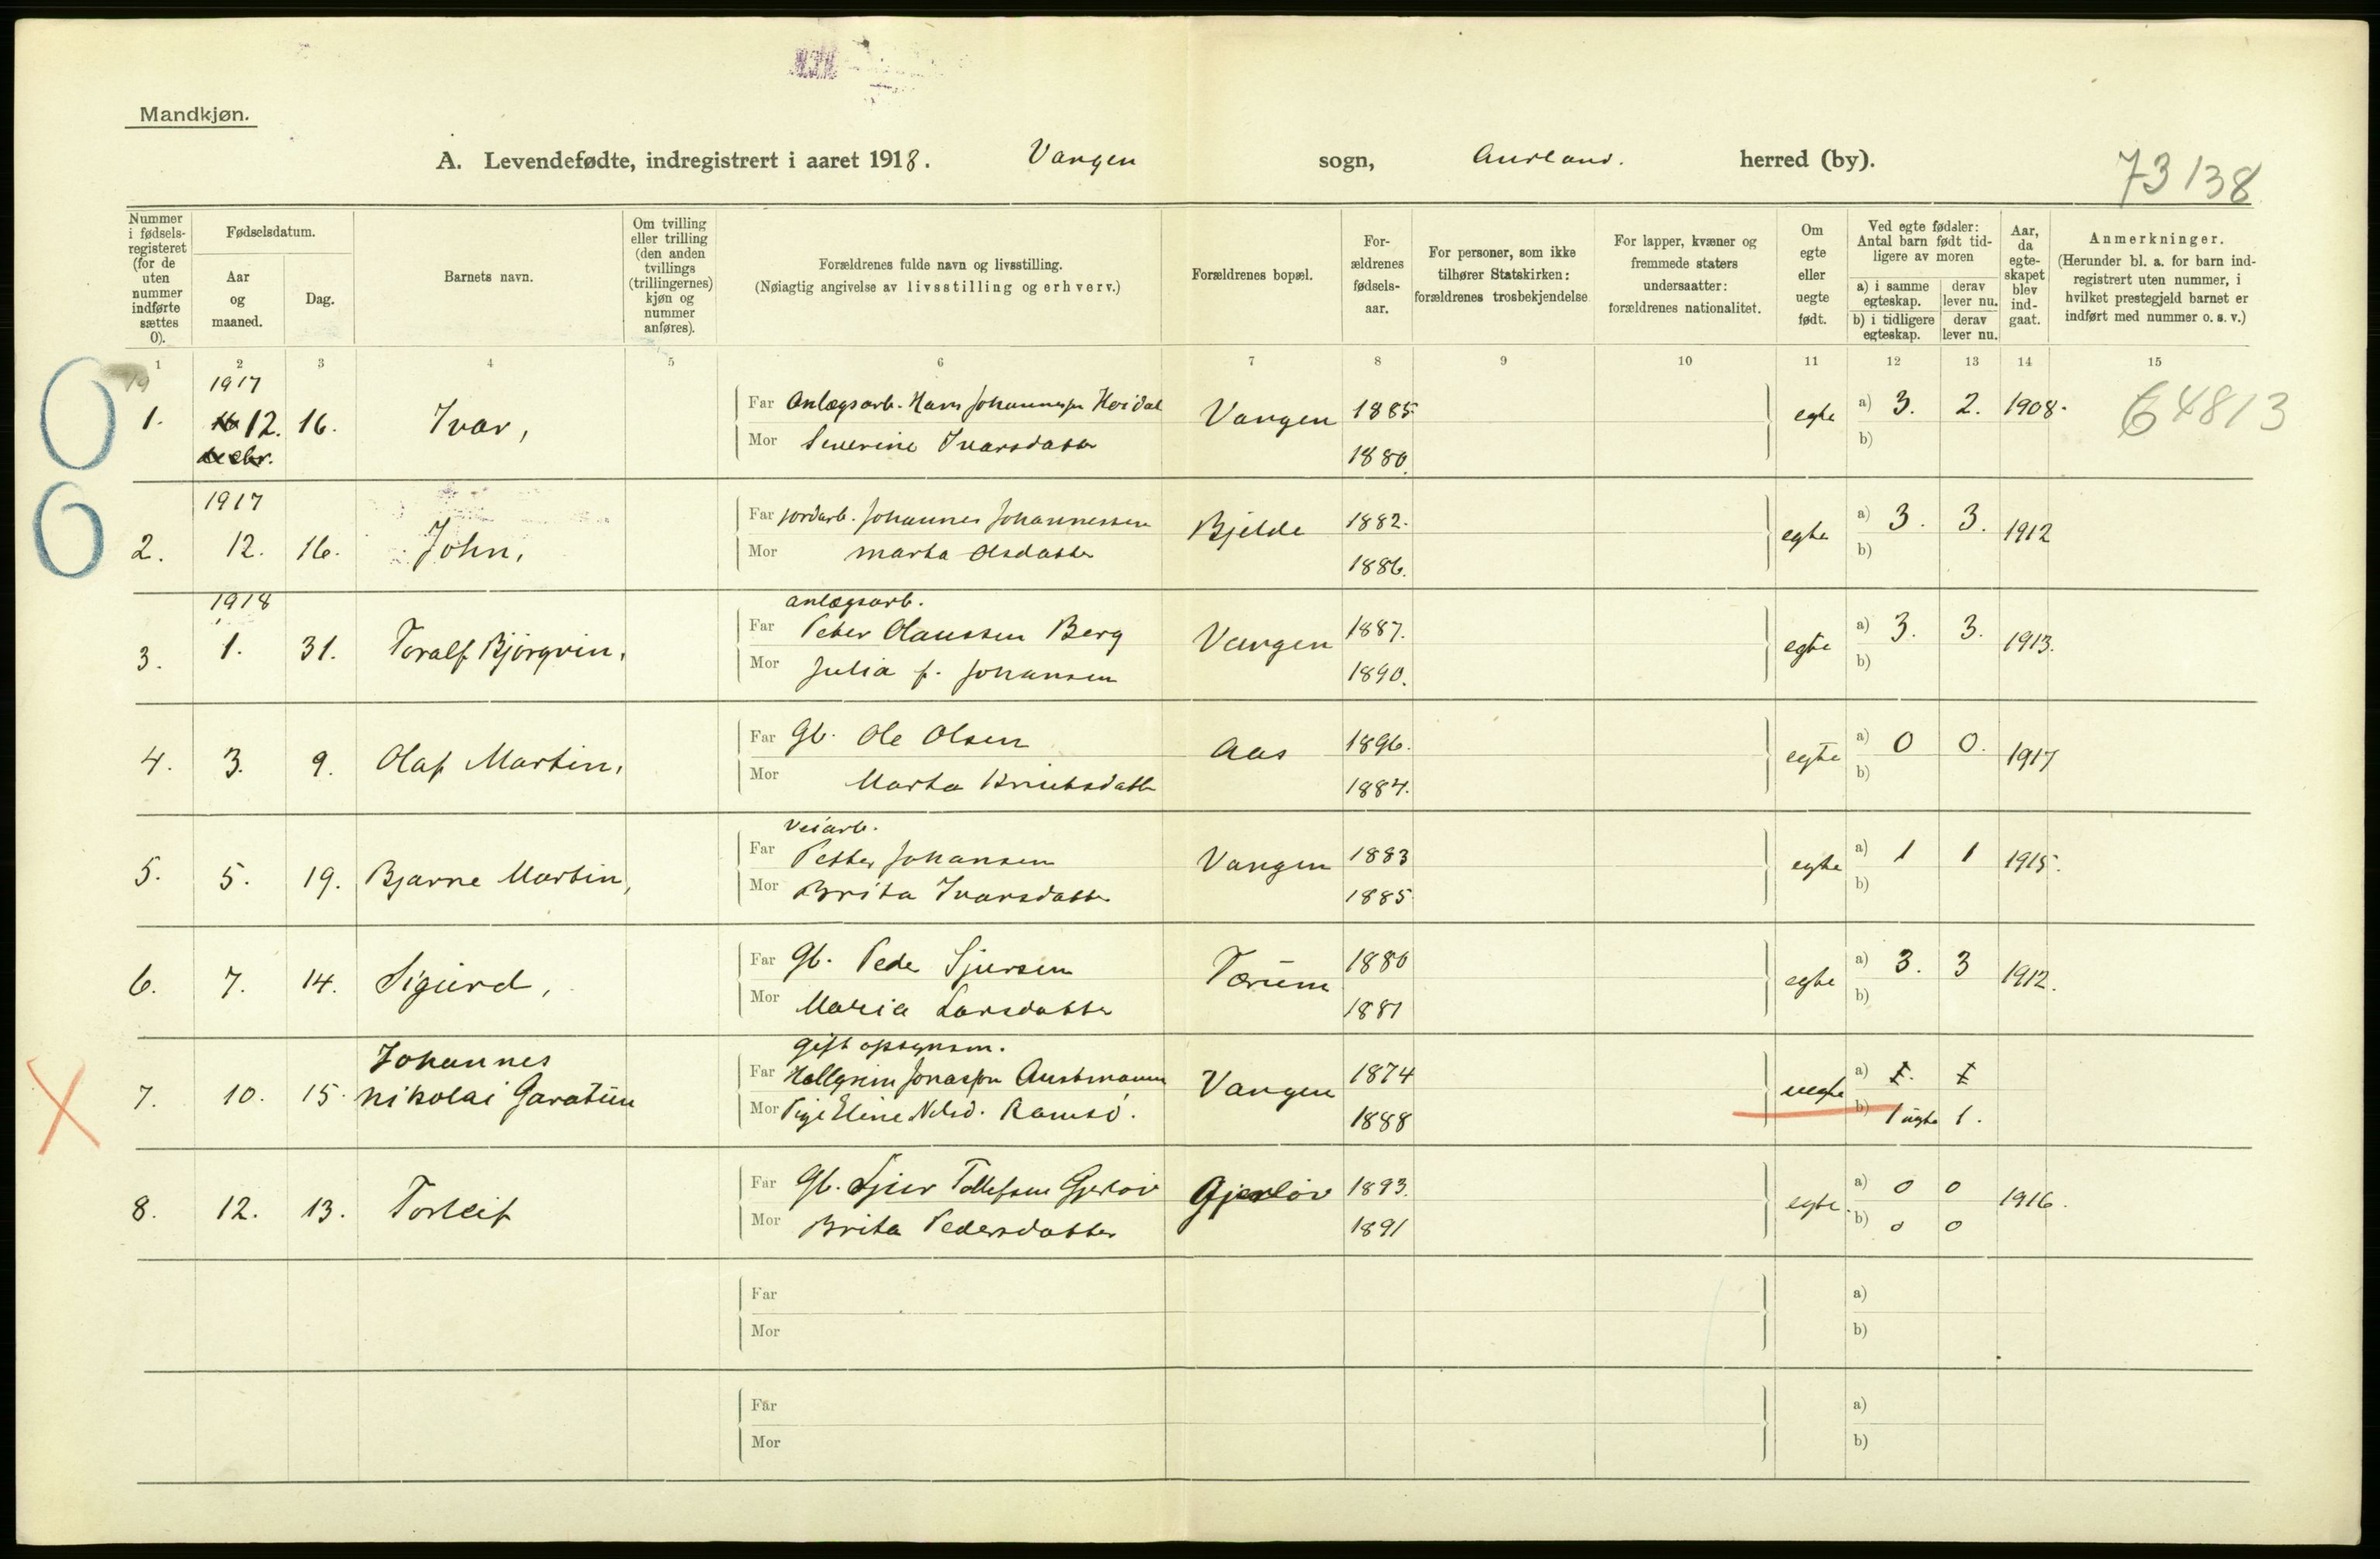 Mandkjøn.
A. Levendefødte, indregistrert i aaret 1918. Vangen sogn, Aurland. herred (by).
73138
Nummer i fødselsregisteret (for de uten nummer indførte sættes 0).
Fødselsdatum.
Aar og maaned.
Dag.
Barnets navn.
Om tvilling eller trilling (den anden tvillings (trillingernes) kjøn og nummer anføres).
Forældrenes fulde navn og livsstilling.
(Nøiagtig angivelse av livsstilling og erhverv.)
Forældrenes bopæl.
Forældrenes fødselsaar.
For personer, som ikke tilhører Statskirken: forældrenes trosbekjendelse
For lapper, kvæner og fremmede staters undersaatter: forældrenes nationalitet.
Om egte eller uegte født.
Ved egte fødsler: Antal barn født tidligere av moren
a) i samme egteskap.
derav lever nu.
b) i tidligere egteskap.
derav lever nu.
Aar, da egteskapet blev indgaat.
Anmerkninger.
(Herunder bl. a. for barn indregistrert uten nummer, i hvilket prestegjeld barnet er indført med nummer o. s. v.)
1 2 3 4 5 6 7 8 9 10 11 12 13 14 15
1917
1. 12. 16. Ivar, Far Anlægsarb. Hans Johannessen Vangen 1885 egte a) 3. 2. 1908. 64813
decbr. Mor Severine Ivarsdatter 1880. b)
1917
2. 12. 16. John, Far jordarb. Johannes Johannessen Bjelde 1882. egte a) 3. 3. 1912
Mor Marta Olsdatter 1886. b)
1918 anlægsarb.
3. 1. 31. Toralf Bjørgvin, Far Peter Olaussen Berg Vangen 1887. egte a) 3. 3. 1913.
Mor Julia f. Johansen 1890. b)
4. 3. 9. Olaf Martin, Far Gb. Ole Olsen Aas 1896. egte a) 0 0. 1917
Mor Marta Knutsdatter 1884. b)
veiarb.
5. 5. 19. Bjarne Martin, Far Petter Johansen Vangen 1883 egte a) 1 1 1915.
Mor Brita Ivarsdatter 1885 b)
6. 7. 14. Sigurd, Far Gb. Peder Sjursen Tærum 1880 egte a) 3. 3 1912.
Mor Maria Larsdatter 1881 b)
Johannes gift opsynsm.
7. 10. 15. Nikolai Garatun Far Hallgrim Jonassøn Austmann Vangen 1874 uegte a) 1. 1
Mor Pige Eline Nilsd. Ramsö. 1888 b) 1 uegte 1.
8. 12. 13. Torleif Far Gb. Sjur Tollefsen Gjerløv Gjerløv 1893. egte. a) 0 0 1916.
Mor Brita Pedersdatter 1891 b) 0 0
Far a)
Mor b)
Far a)
Mor b)